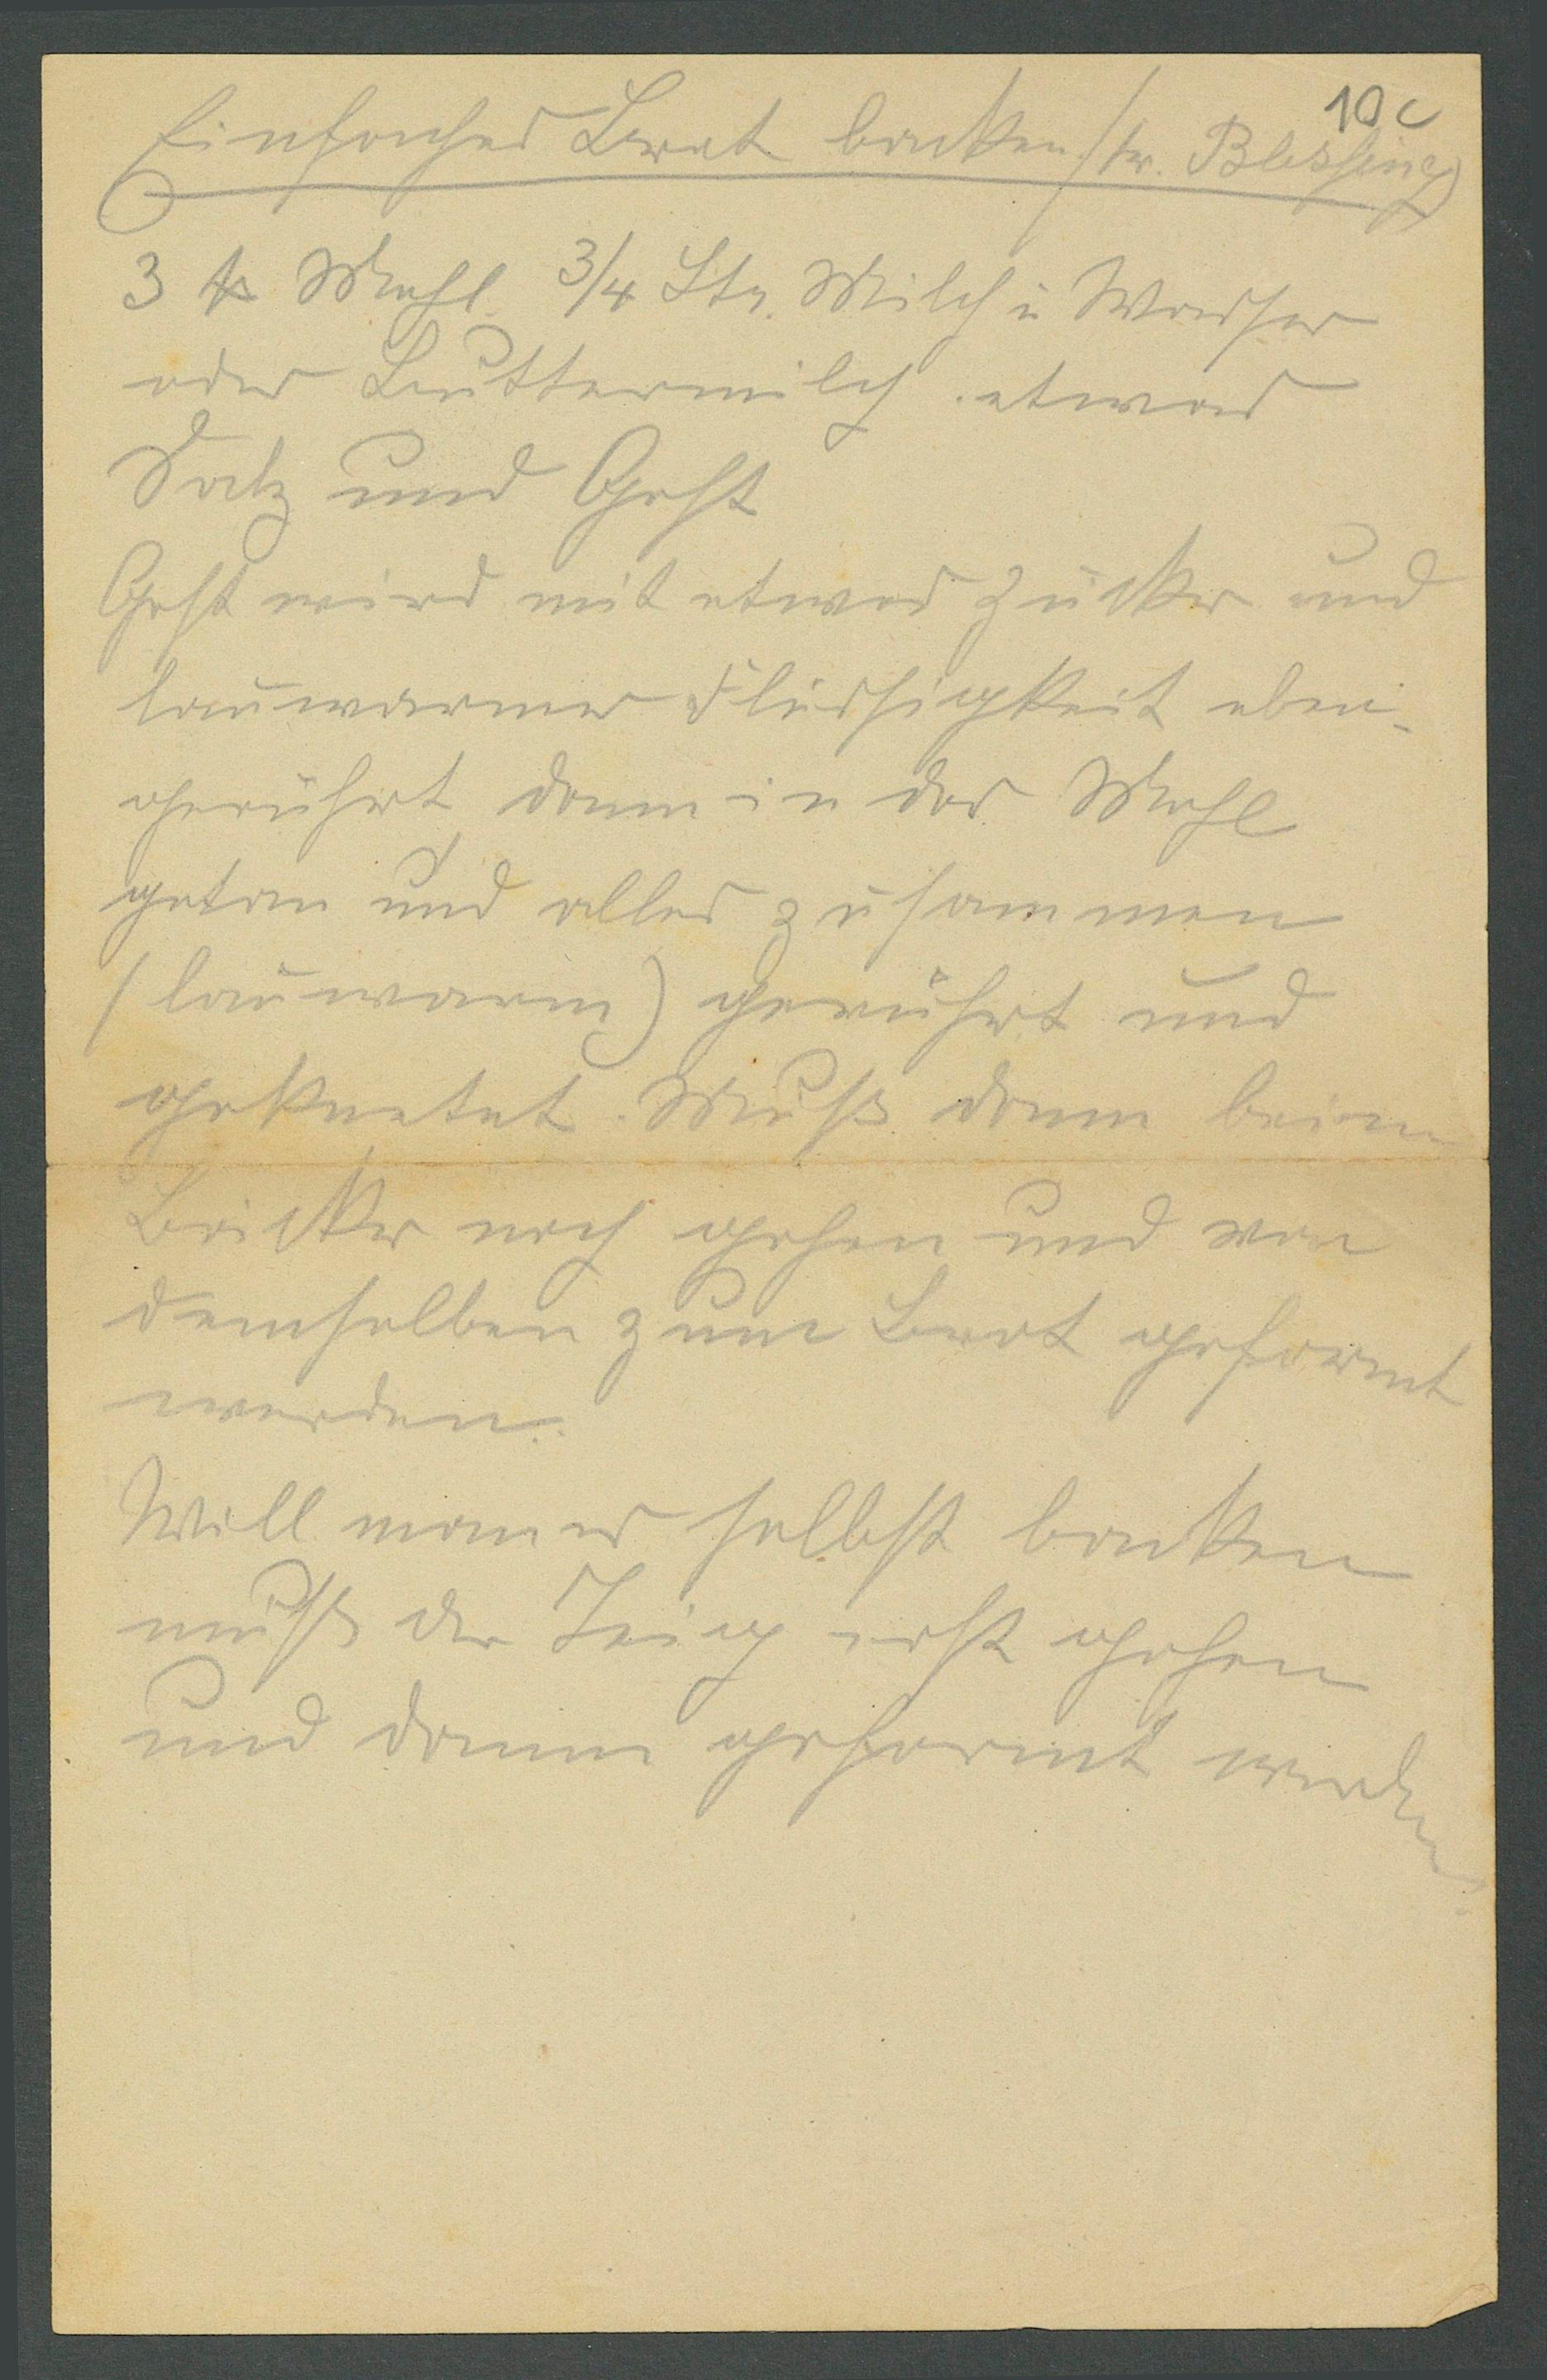 10c
Einfaches Brot backen (Fr. Blessing)
3 ℔ Mehl 3/4 Ltr. Milch u Wasser
oder Buttermilch. etwas
Salz und Gest
Gest wird mit etwas Zucker und
lauwarmer Flüssigkeit
gerührt dann in das Mehl
getan und alles zusammen
(lauwarm) gerührt und
geknetet. Muß dann beim
Bäcker noch gehen und von
demselben zum Brot geformt
werden.
Will man es selbst backen
muß der Teig erst gehen
und dann geformt werden.